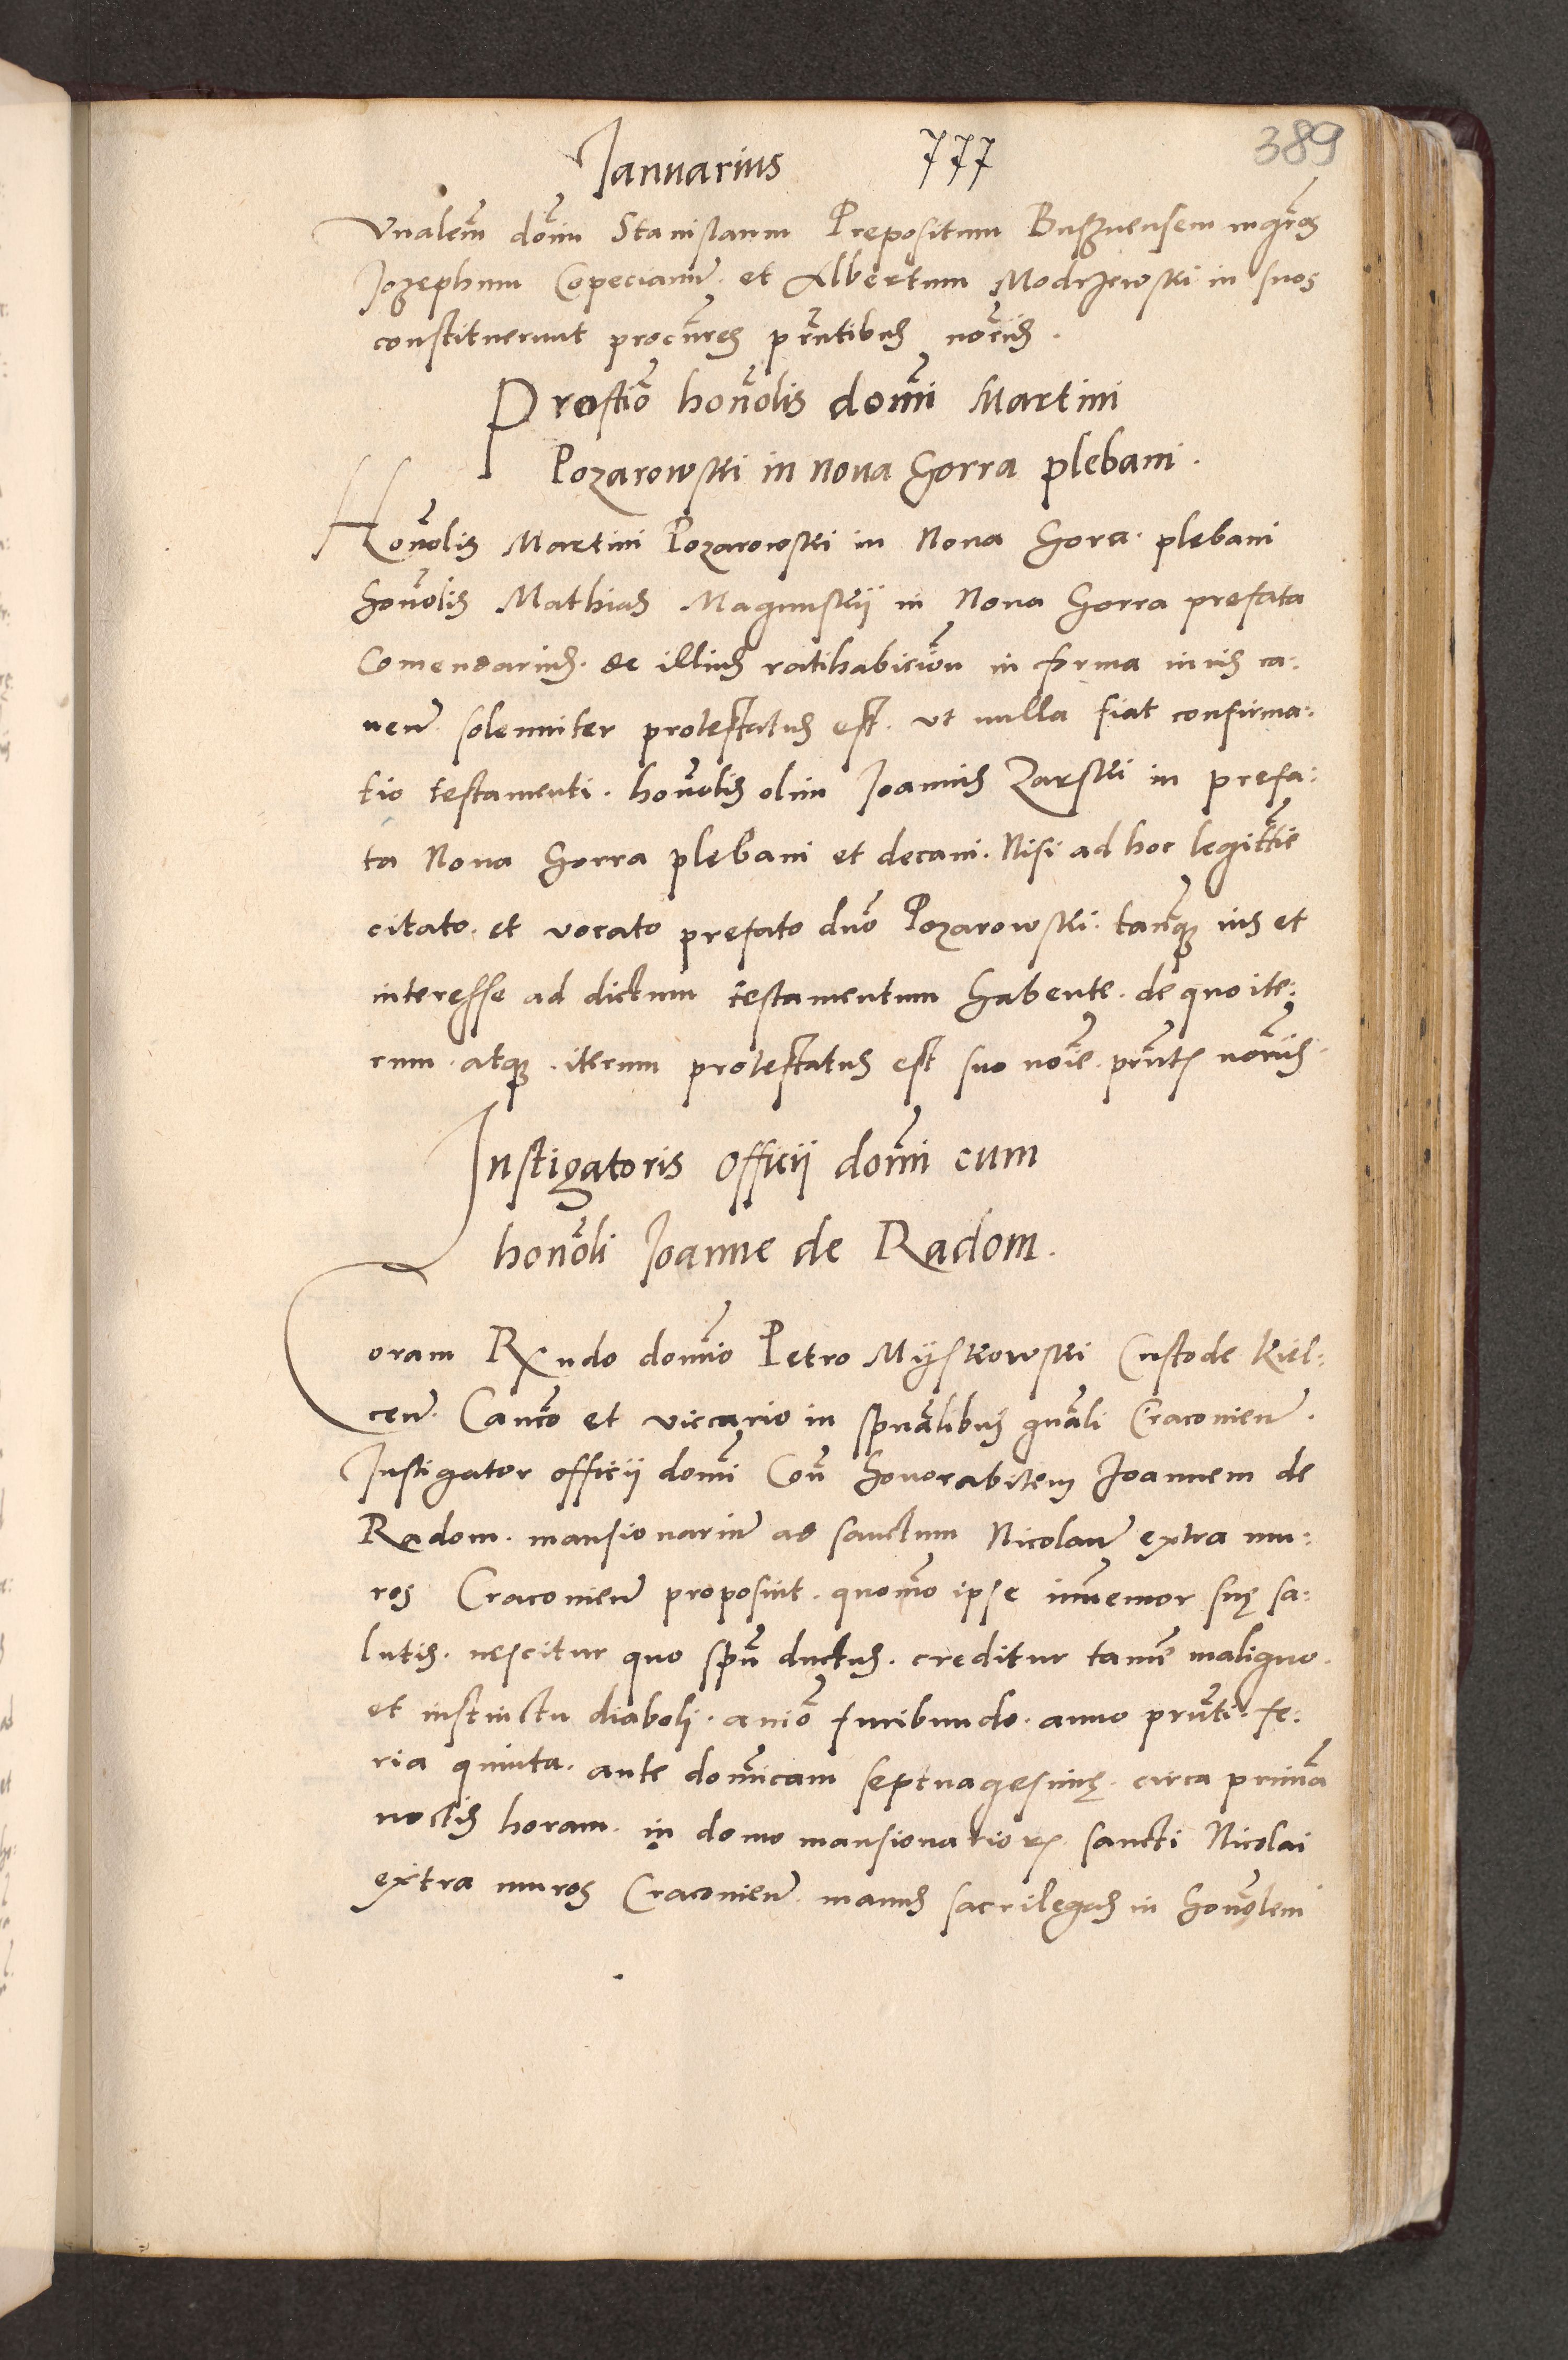 Ianuarius 777 389
Vnalem̃ dom̃ Stanislaum Prepositum Busznensem mgr̃os
Jozephum Copecianũ. et Albertum Modrzewski in suos
constituerunt procur̃es pñtibus nõriis.
Protestio honolis domini Martini
Pozarowski in noua Gorra plebani.
Honolis Martini Pozarowski in Noua Gora. plebani
honolis Mathias Magnuskij in Noua Gorra prefata
Comendarius. de illius ratihabicion̄ in forma iuris ca:
uen̄ solenniter protestatus est. vt nulla fiat confirma:
tio testamenti. honolis olim Joannis Zarski in prefa:
ta Noua Gorra plebani et decani. Nisi ad hoc legittie
citato. et vocato prefato dno Pozarowski. tanq̃ ius et
interesse ad dictum testamentum habente. de quo ite:
rum. atq̃. iterum protestatus est suo noĩe. pñt nõriis
Instigatoris officii domini cum
honoli Joanne de Radom.
Coram Rx̃ndo domino Petro Mÿskowski Custode Kiel:
cen̄. Canco et viccario in spũalibus gñali Cracouien̄.
Instigator officii domini Con̄ honorabilem Joannem de
Radom. mansionariũ ad sanctum Nicolaũ extra mu:
ros Cracouien̄ proposuit. quomõ ipse immemor suę sa:
lutis. nescitur quo spũ ductus. creditur tamẽ maligno.
et instinctu diaboli. anĩo furibundo. anno pñti. fe:
ria quinta. ante domĩcam septuagesimę. circa primã
noctis horam. in domo mansionarior. sancti Nicolai
extra muros Cracouien̄. manus sacrilegas in honolem